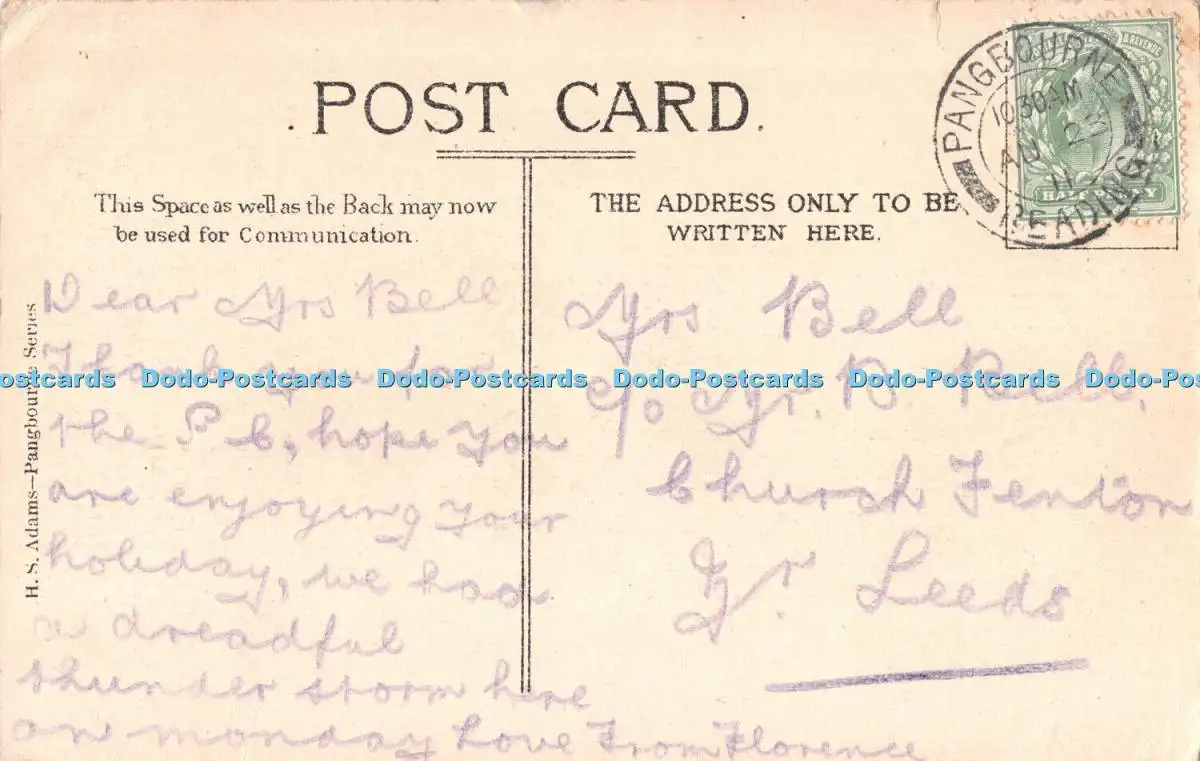 POST CARD.
This Space as well as the Back may now
be used for Communication.
THE ADDRESS ONLY TO BE
WRITTEN HERE.
PANGBOURNE
10 30 AM
AU 23
11
READING
& REVENUE
H. S. Adams—Pangbourne Series
Dear Mrs Bell
Thank you for
the P C, hope you
are enjoying your
holiday, we had
a dreadful
thunder storm here
on monday Love From Florence
Mrs Bell
c/o Mr. B Bell,
Church Fenton
Nr Leeds
Dodo-Postcards Dodo-Postcards Dodo-Postcards Dodo-Postcards Dodo-Postcards